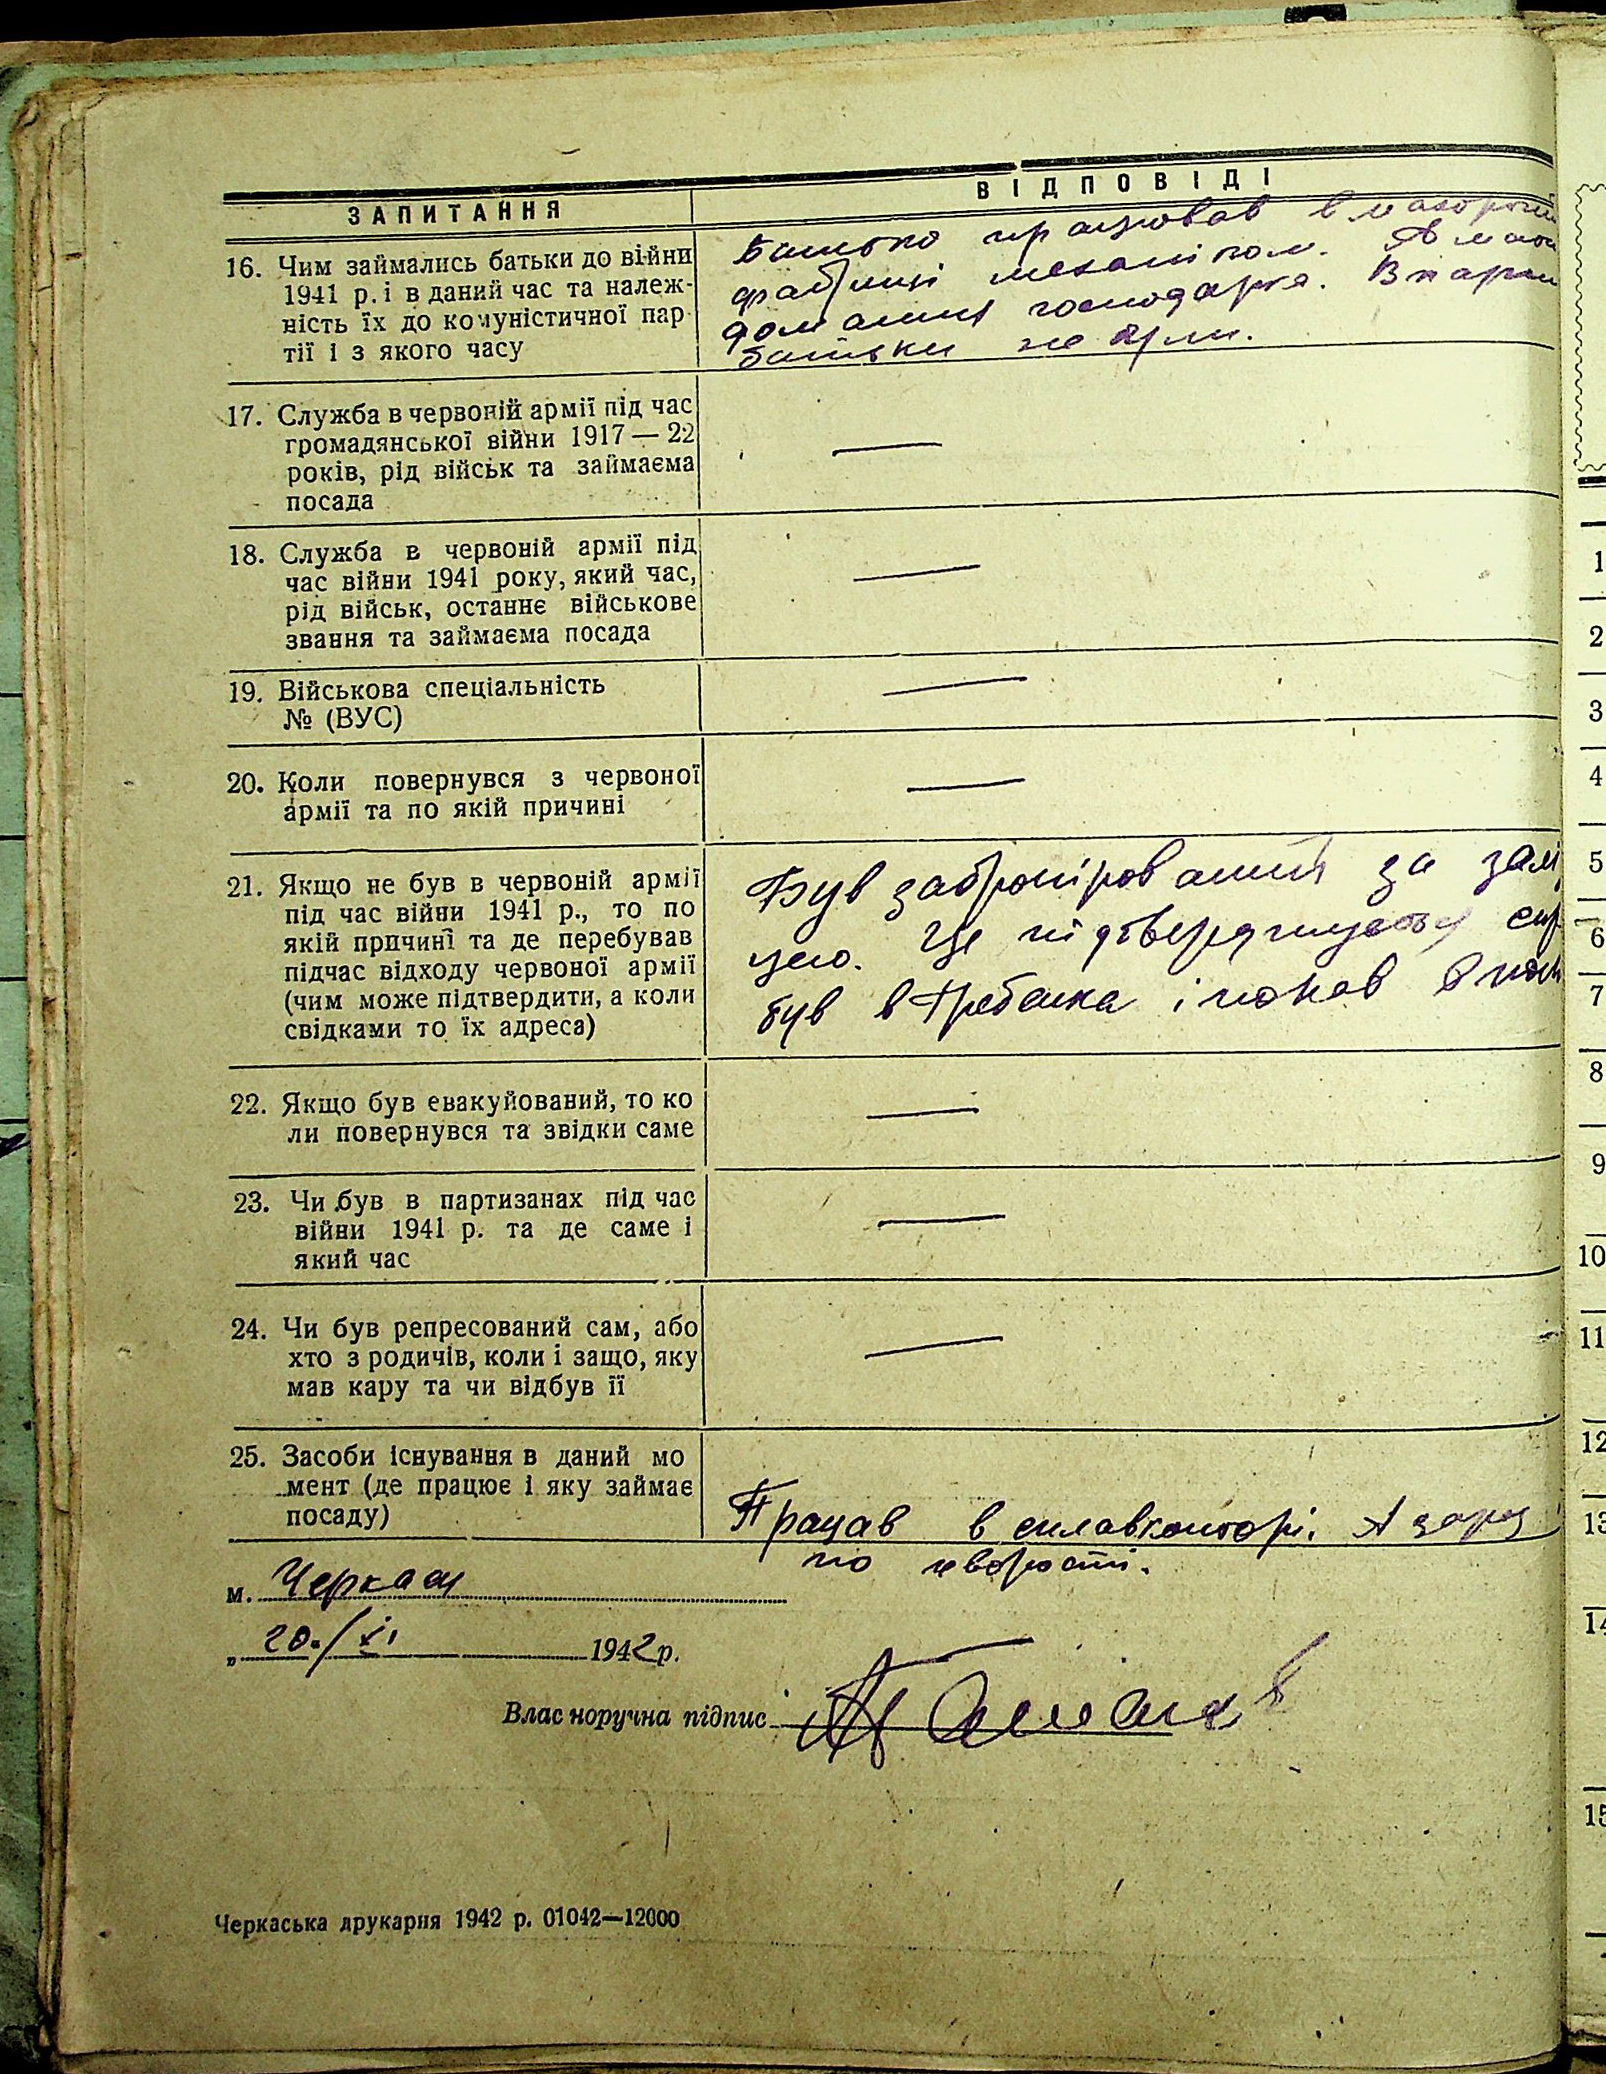 ЗАПИТАННЯ
ВІДПОВІДІ
16. Чим займались батьки до війни
1941 р. і в даний час та належ-
ність їх до комуністичної пар-
тії і з якого часу
Батько працював в махорочній
фабриці механіком. А мати
домашня господарка. В парти
батьки не були.
17. Служба в червоній армії під час
громадянської війни 1917 — 22
років, рід військ та займаєма
посада
—
18. Служба в червоній армії під
час війни 1941 року, який час,
рід військ, останнє військове
звання та займаєма посада
—
19. Військова спеціальність
№ (ВУС)
—
20. Коли повернувся з червоної
армії та по якій причині
—
21. Якщо не був в червоній армії
під час війни 1941 р., то по
якій причині та де перебував
підчас відходу червоної армії
(чим може підтвердити, а коли
свідками то їх адреса)
Був забронірований за заліз
цею. Це підтверджують
був в Гребенка і попав в
22. Якщо був евакуйований, то ко
ли повернувся та звідки саме
—
23. Чи був в партизанах під час
війни 1941 р. та де саме і
який час
—
24. Чи був репресований сам, або
хто з родичів, коли і защо, яку
мав кару та чи відбув її
—
25. Засоби існування в даний мо
мент (де працює і яку займає
посаду)
Працав в сплавконторі. А зараз
по хворості.
м. Черкаси
„ 20./XI 1942 р.
Власноручна підпис
Черкаська друкарня 1942 р. 01042—12000
1
2
3
4
5
6
7
8
9
10
11
12
13
14
15